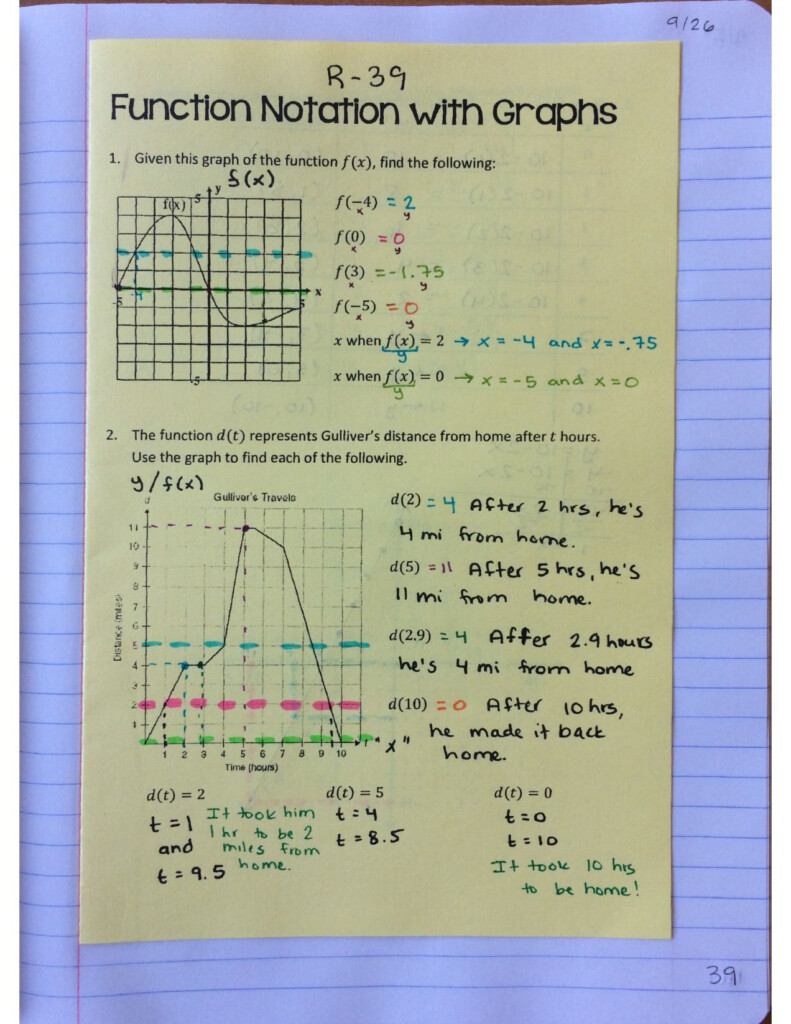 9/26
R-39
Function Notation with Graphs
1. Given this graph of the function f(x), find the following:
f(x)
y
5
f(x)
x
-5
-4
5
-5
f(-4) = 2
x y
f(0) = 0
x y
f(3) = -1.75
x y
f(-5) = 0
x y
x when f(x) = 2 → x = -4 and x = -.75
y
x when f(x) = 0 → x = -5 and x = 0
y
2. The function d(t) represents Gulliver's distance from home after t hours.
Use the graph to find each of the following.
y/f(x)
d
Gulliver's Travels
Distance (miles)
11
10
9
8
7
6
5
4
3
2
1
1 2 3 4 5 6 7 8 9 10 t "x"
Time (hours)
d(2) = 4 After 2 hrs, he's
4 mi from home.
d(5) = 11 After 5 hrs, he's
11 mi from home.
d(2.9) = 4 After 2.9 hours
he's 4 mi from home
d(10) = 0 After 10 hrs,
he made it back
home.
d(t) = 2
t = 1
and
t = 9.5
It took him
1 hr to be 2
miles from
home.
d(t) = 5
t = 4
t = 8.5
d(t) = 0
t = 0
t = 10
It took 10 hrs
to be home!
39